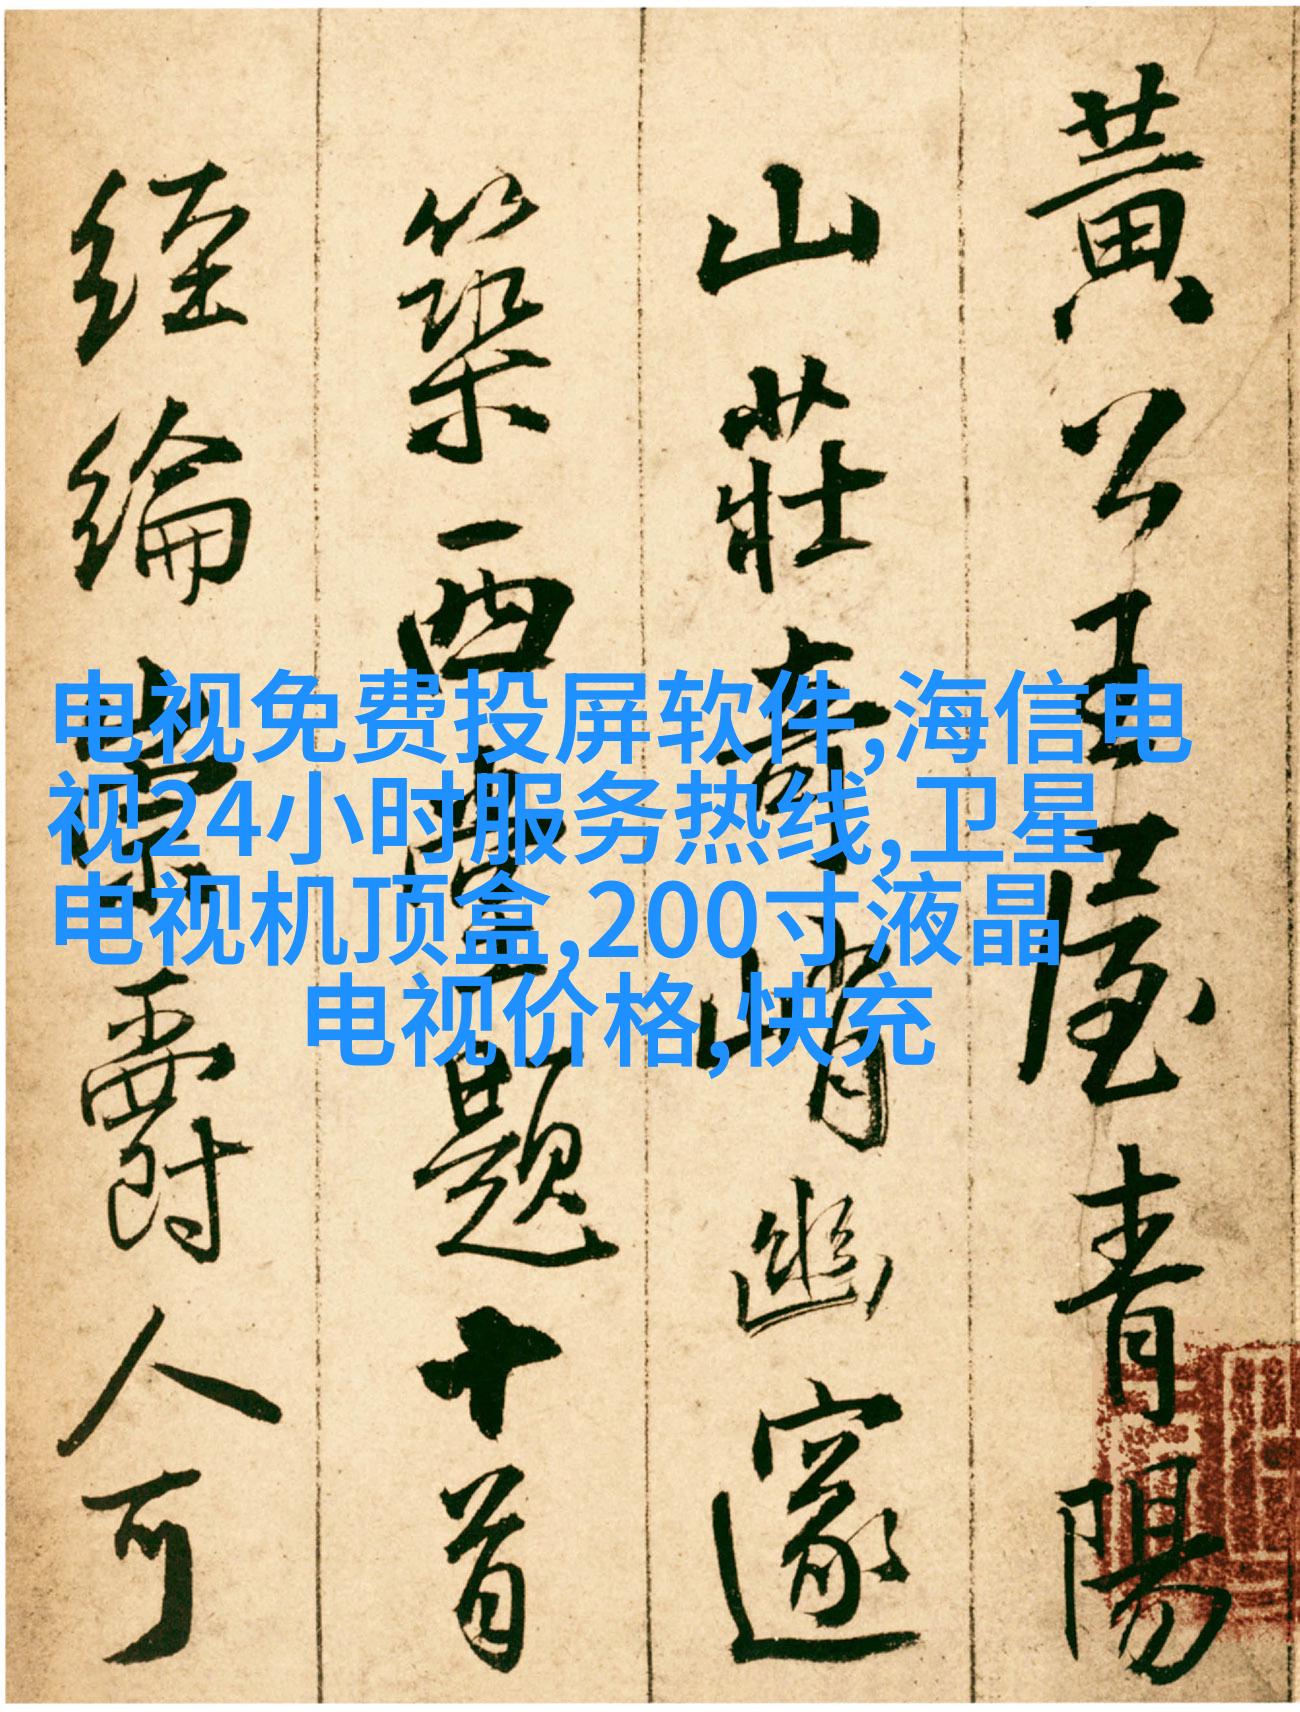 电视免费投屏软件,海信电
视24小时服务热线,卫星
电视机顶盒,200寸液晶
电视价格,快充
黃公王屋青陽
山莊奇峭幽邃
築西題十首
經綸爵人可